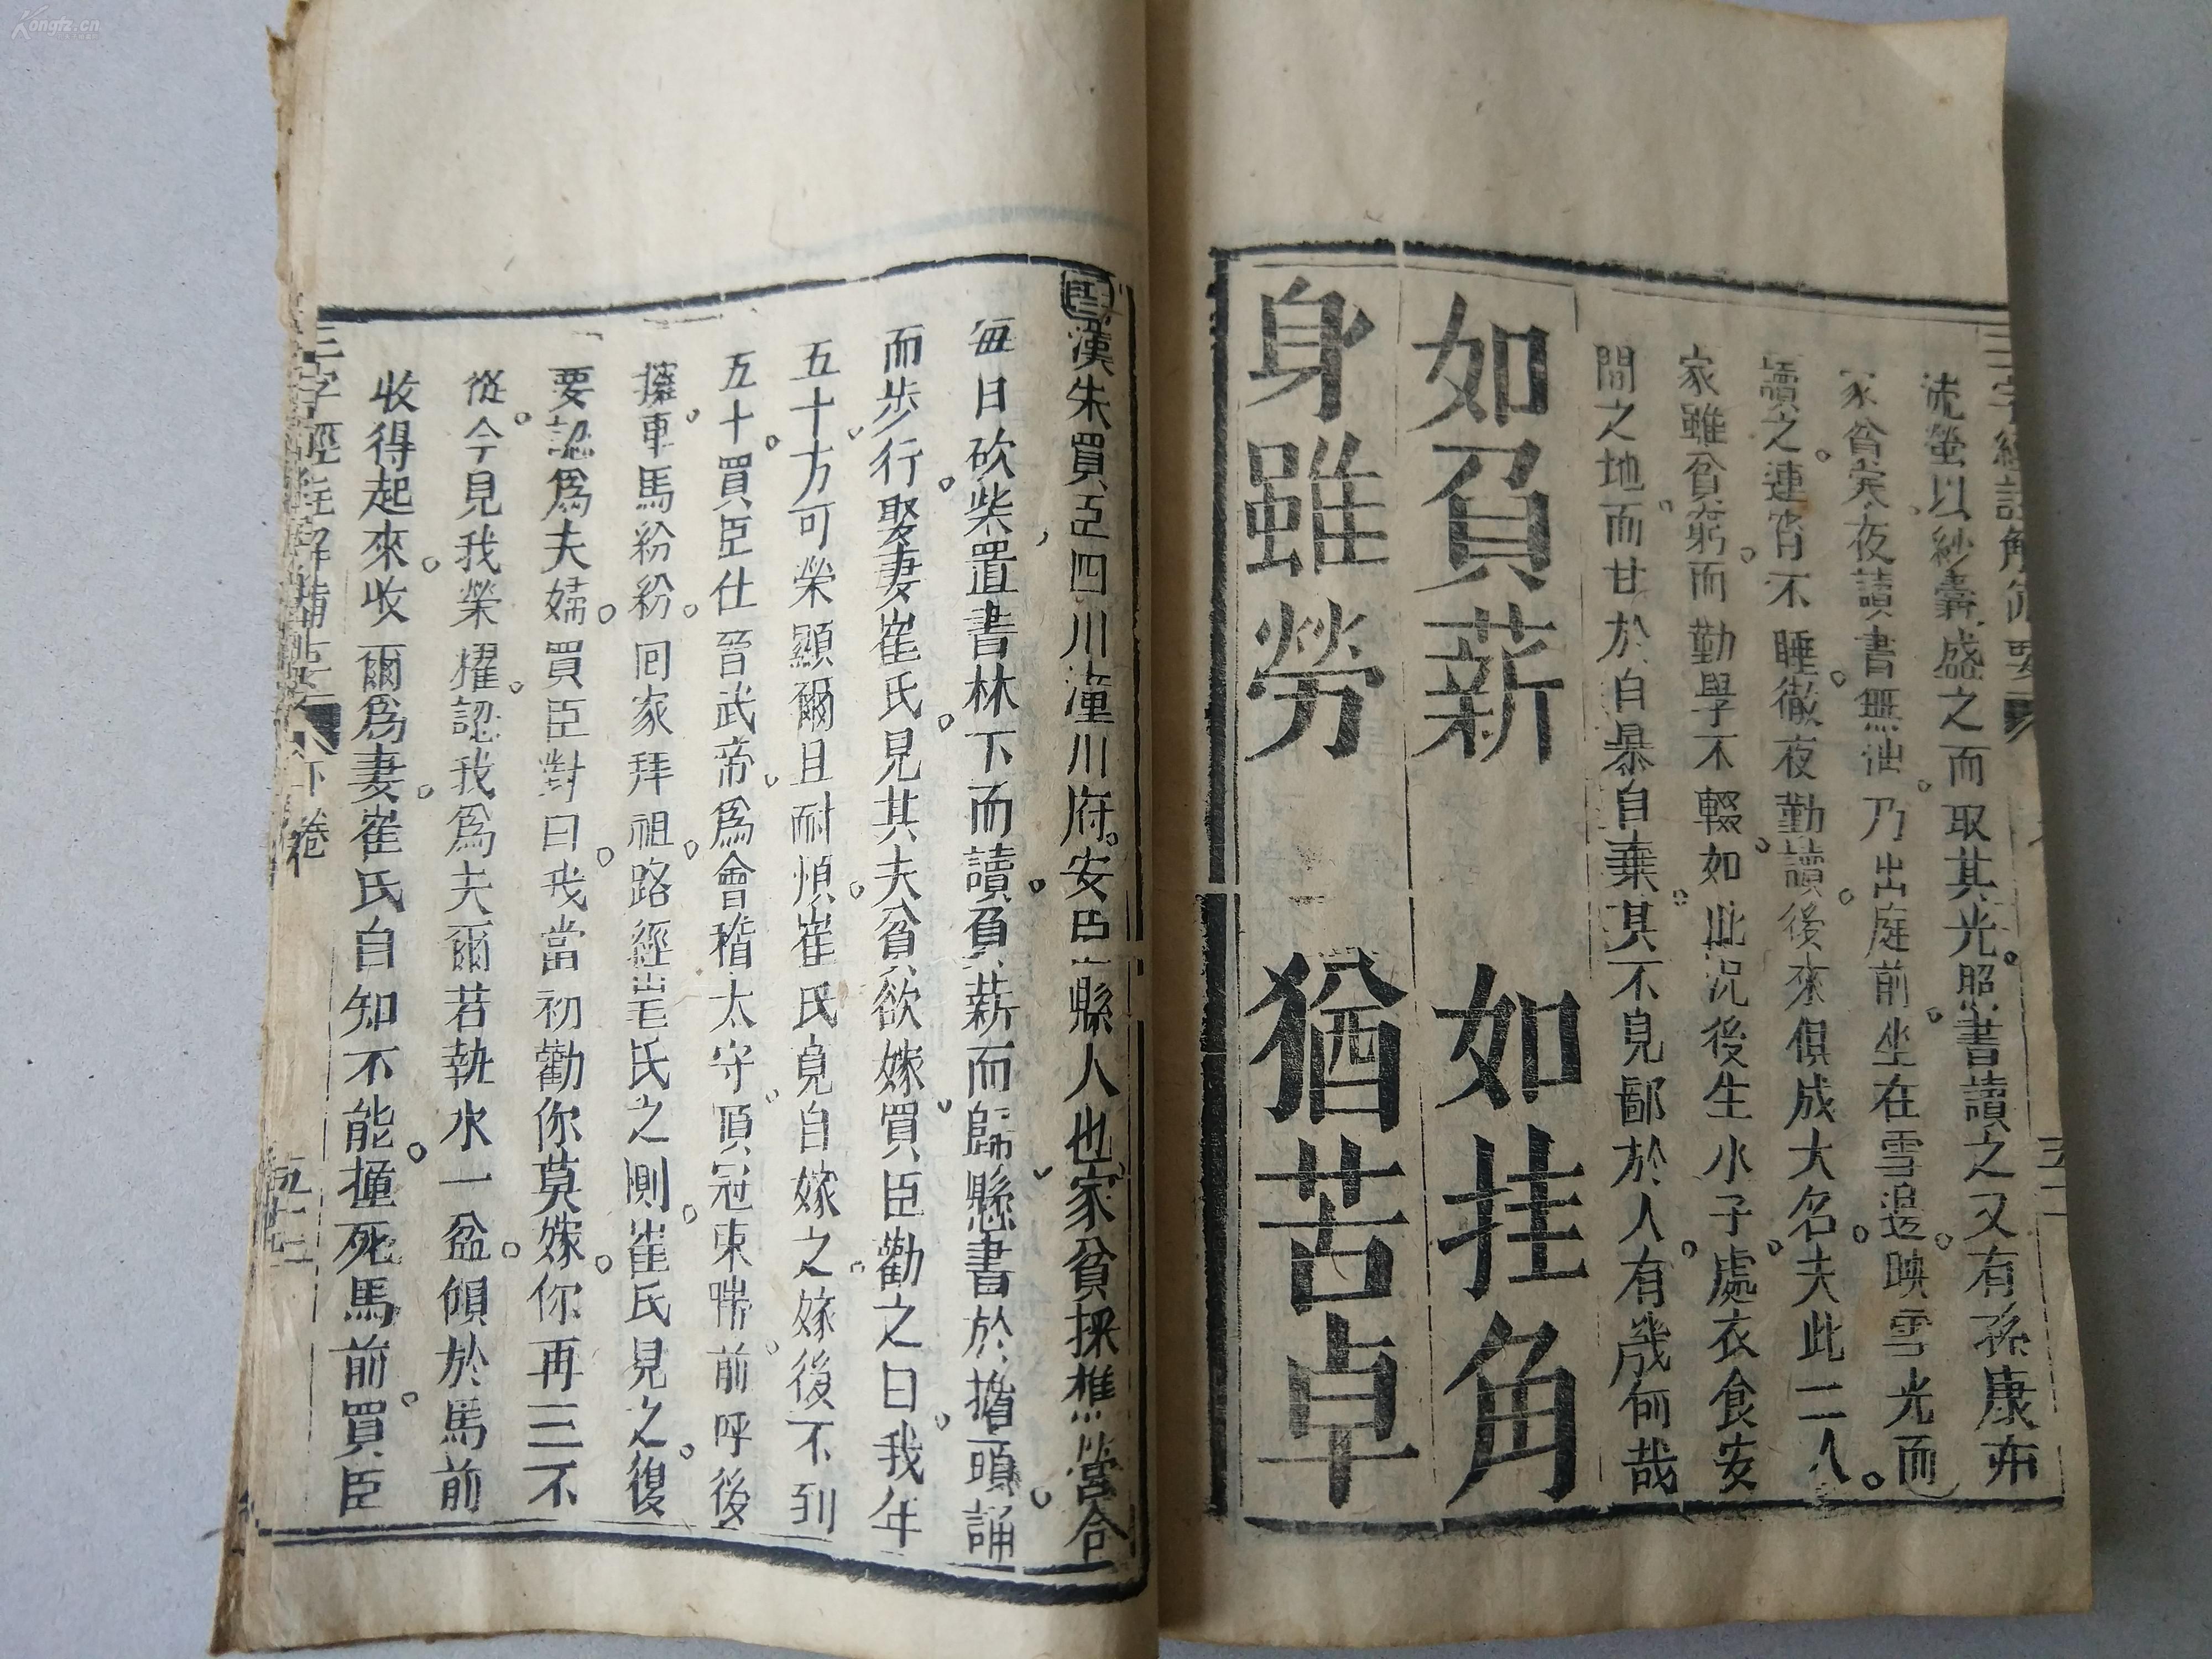 Kongfz.cn
流螢以紗囊盛之而取其光照書讀之又有孫康亦
家貧矣夜讀書無油乃出庭前坐在雪邊映雪光而
讀之連宵不睡徹夜勤讀後來俱成大名夫此二人
家雖貧窮而勤學不輟如此况後生小子處衣食安
閒之地而甘於自暴自棄其不見鄙於人有幾何哉
如負薪 如挂角
身雖勞 猶苦卓
漢朱買臣四川潼川府安巳縣人也家貧採樵營合
每日砍柴置書林下而讀負薪而歸懸書於擔頭誦
而步行娶妻崔氏見其夫貧欲嫁買臣勸之曰我年
五十方可榮顯爾且耐煩崔氏竟自嫁之嫁後不到
五十買臣仕晉武帝爲會稽太守頂冠束帶前呼後
擁車馬紛紛囘家拜祖路經崔氏之側崔氏見之復
要認爲夫婦買臣對曰我當初勸你莫嫁你再三不
從今見我榮耀認我爲夫爾若執水一盆傾於馬前
收得起來收爾爲妻崔氏自知不能撞死馬前買臣
三字經註解備要 下卷 五十二